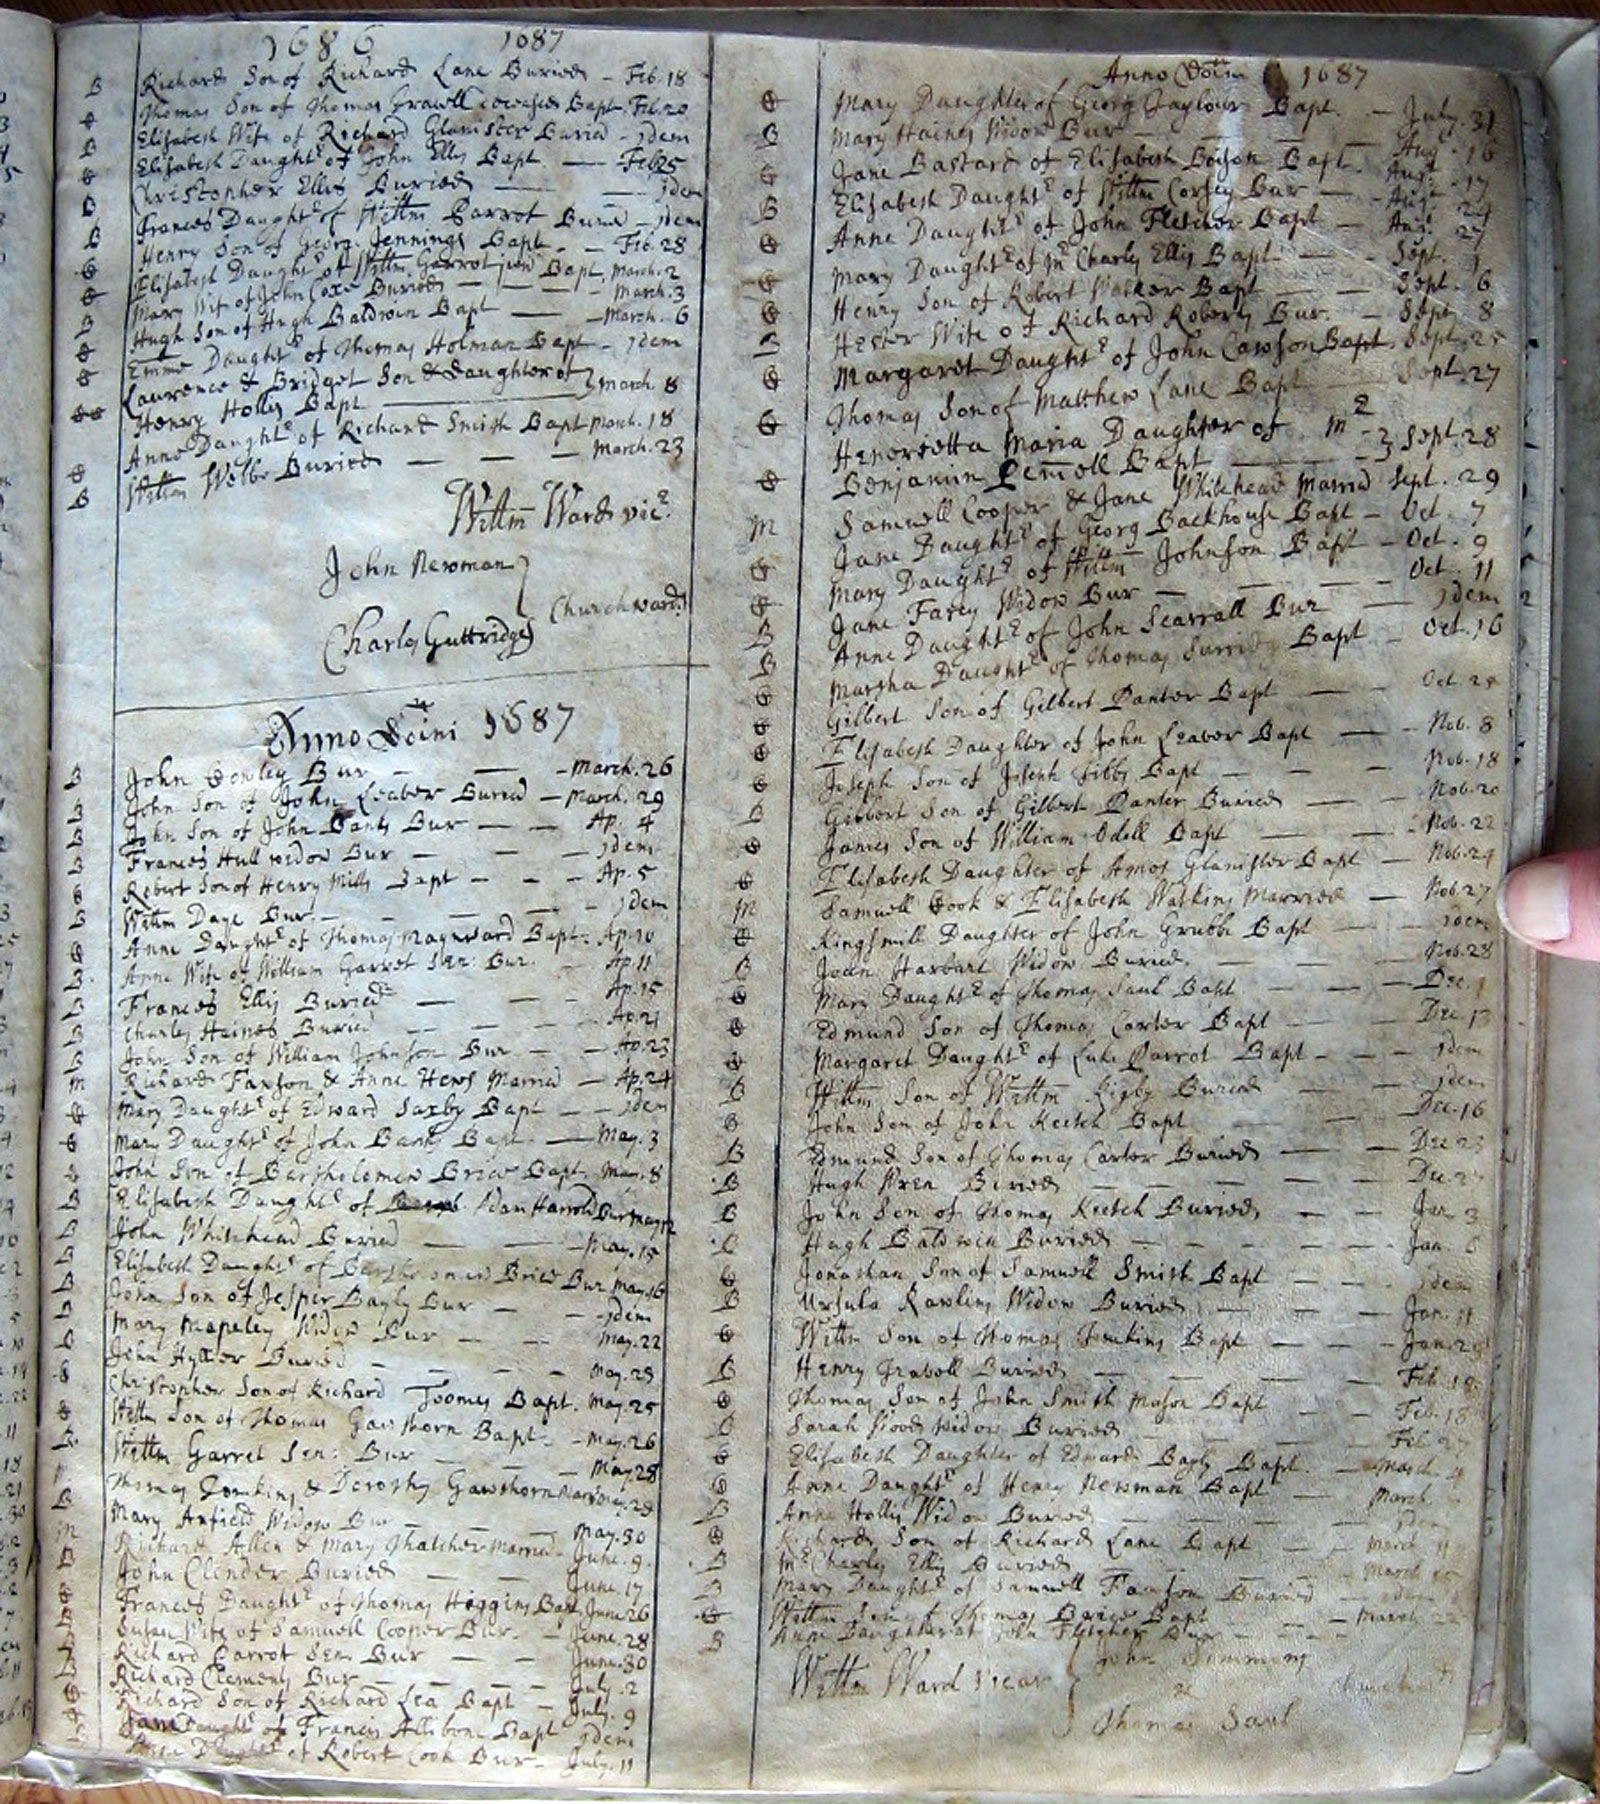 1686 1687
B Richard Son of Richard Lane Buried - Feb. 18
Thomas Son of Thomas Bapt. Feb. 20
B Elisabeth Wife of Richard Glanister Buried - jdem
Elisabeth Daught.r of John Ellis Bapt. — Feb 25
B Christopher Ellis Buried — jdem
B Frances Daught.r of Willm Parrot Buried - jdem
Henry Son of Georg. Jennings Bapt. - - Feb. 28
Elisabeth Daught.r of Willm. Garrot jun Bapt. March. 2
B Mary Wife of John Coxe Buried — — — March. 3
Hugh Son of Hugh Baldwin Bapt — March. 6
Emme Daught.r of Thomas Holman Bapt - jdem
Laurence & Bridget Son & Daughter of } March. 8
Henry Hollis Bapt
Anne Daught.r of Richard Smith Bapt March. 18
B Willm Welbe Buried — — — March. 23
Willm Ward vic.r
John Newman }
Churchward.s
Charles Guttridge
Anno Domini 1687
B John Bur — — March. 26
B John Son of John Leaber Buried — March. 29
B John Son of John Banks Bur — — Ap. 4
B Frances Hull widow Bur — — jdem
Robert Son of Henry Mills Bapt - - - Ap. 5
B Willm Daye Bur - — — jdem
Anne Daught.r of Thomas Maynward Bapt. Ap. 10
B Anne Wife of William Garret Sen: Bur. — Ap. 11
B Frances Ellis Buried — — Ap. 15
B Charles Haines Buried — — Ap. 21
B John Son of William Johnson Bur — — Ap. 23
M Richard Fawson & Anne Hews Married — Ap. 24
Mary Daught.r of Edward Saxby Bapt — - jdem
Mary Daught.r of John Banks Bapt. — May. 3
John Son of Bartholomew Brice Bapt May. 8
B Elisabeth Daught.r of Adam Harrold Bur May 12
B John Whitehead Buried — — May. 15
B Elisabeth Daught.r of Bartholomew Brice Bur May. 16
B John Son of Jesper Bayly Bur — — jdem
B Mary Mapeley Widow Bur — — May. 22
B John Hyller Buried — — May.
Christopher Son of Richard Toomes Bapt. May. 25
Willm Son of Thomas Gawthorn Bapt. - May. 26
B Willm Garret Sen: Bur — — May. 28
Thomas Tomkins & Dorothy Gawthorn May. 29
B Mary Anfield Widow Bur — — May. 30
M Richard Allen & Mary Thatcher Married - June. 9.
B John Clender Buried — — June. 17
Frances Daught.r of Thomas Higgins Bapt June 26
B Susan Wife of Samuell Cooper Bur. — June. 28
B Richard Parrot Sen. Bur — — June. 30
B Richard Clements Bur — — July. 2
Richard Son of Richard Lea Bapt — July. 9
Jane Daught.r of Francis Allibone Bapt jdem
Daught.r of Robert Cook Bur - July. 11
Anno Domini 1687
Mary Daughter of Georg Taylour Bapt. — July. 31
B Mary Haines Widow Bur — — Aug. 16
Jane Bastard of Elisabeth Boison Bapt. Aug. 17
B Elisabeth Daught.r of Willm Corsey Bur — Aug. 24
Anne Daught.r of John Fletcher Bapt — Aug. 27
Mary Daught.r of Mr Charles Ellis Bapt — — Sept. 1
Henry Son of Robert Walker Bapt — — Sept. 6
B Hester Wife of Richard Roberts Bur. — Sept 8
Margaret Daught.r of John Cawson Bapt. Sept. 25
Thomas Son of Matthew Lane Bapt — Sept. 27
Henerietta Maria Daughter of Mr } Sept. 28
Benjamin Bapt
M Samuell Cooper & Jane Whitehead Married Sept. 29
Jane Daught.r of Georg Backhouse Bapt — Oct. 7
Mary Daught.r of Willm Johnson Bapt — Oct. 9
B Jane Farey Widow Bur — — — Oct. 11
B Anne Daught.r of John Scarrall Bur — jdem
Martha Daught.r of Thomas Bapt — Oct. 16
Gilbert Son of Gilbert Panter Bapt — — Oct. 25
Elisabeth Daughter of John Leaver Bapt — - Nob. 8
Joseph Son of Joseph Tibbs Bapt — — Nob. 18
B Gibbert Son of Gilbert Panter Buried — — Nob. 20
James Son of William Odell Bapt — — Nob. 22
Elisabeth Daughter of Amos Glanister Bapt — Nob. 24
M Samuell Cook & Elisabeth Watkins Married — Nob. 27
Kingsmill Daughter of John Grubbe Bapt — jdem
B Joan Harbart Widow Buried. — — Nob. 28
Mary Daught.r of Thomas Saul Bapt — — Dec. 1
Edmund Son of Thomas Carter Bapt — — Dec. 13
Margaret Daught.r of Luke Parrot Bapt — - jdem
B Willm Son of Willm Rigby Buried — — jdem
John Son of John Keetch Bapt — Dec. 16
B Edmund Son of Thomas Carter Buried — — Dec 23
B Hugh Wren Buried — — — Dec. 27
B John Son of Thomas Keetch Buried — — Jan. 3
B Hugh Baldwin Buried — — — Jan. 6
Jonathan Son of Samuell Smith Bapt — — jdem
B Ursula Rawlins Widow Buried — — Jan. 11
Willm Son of Thomas Tomkins Bapt — — Jan. 2
B Henry Grabell Buried — — — Feb. 10
Thomas Son of John Smith Mason Bapt — — Feb. 18
B Sarah widow Buried — — Feb. 27
Elisabeth Daughter of Edward Bayly Bapt. — March. 4
Anne Daught.r of Henry Newman Bapt — March
B Anne Hollis Widow Buried — — jdem
Richard Son of Richard Lane Bapt — March 11
B Mr Charles Ellis Buried — — March 15
B Mary Daught.r of Samuell Fawson Buried — jdem
Willm Son of Thomas Brice Bapt — — March 22
B Anne Daughter of John Fletcher Bur — —
Willm Ward vicar } John
&
Thomas Saul